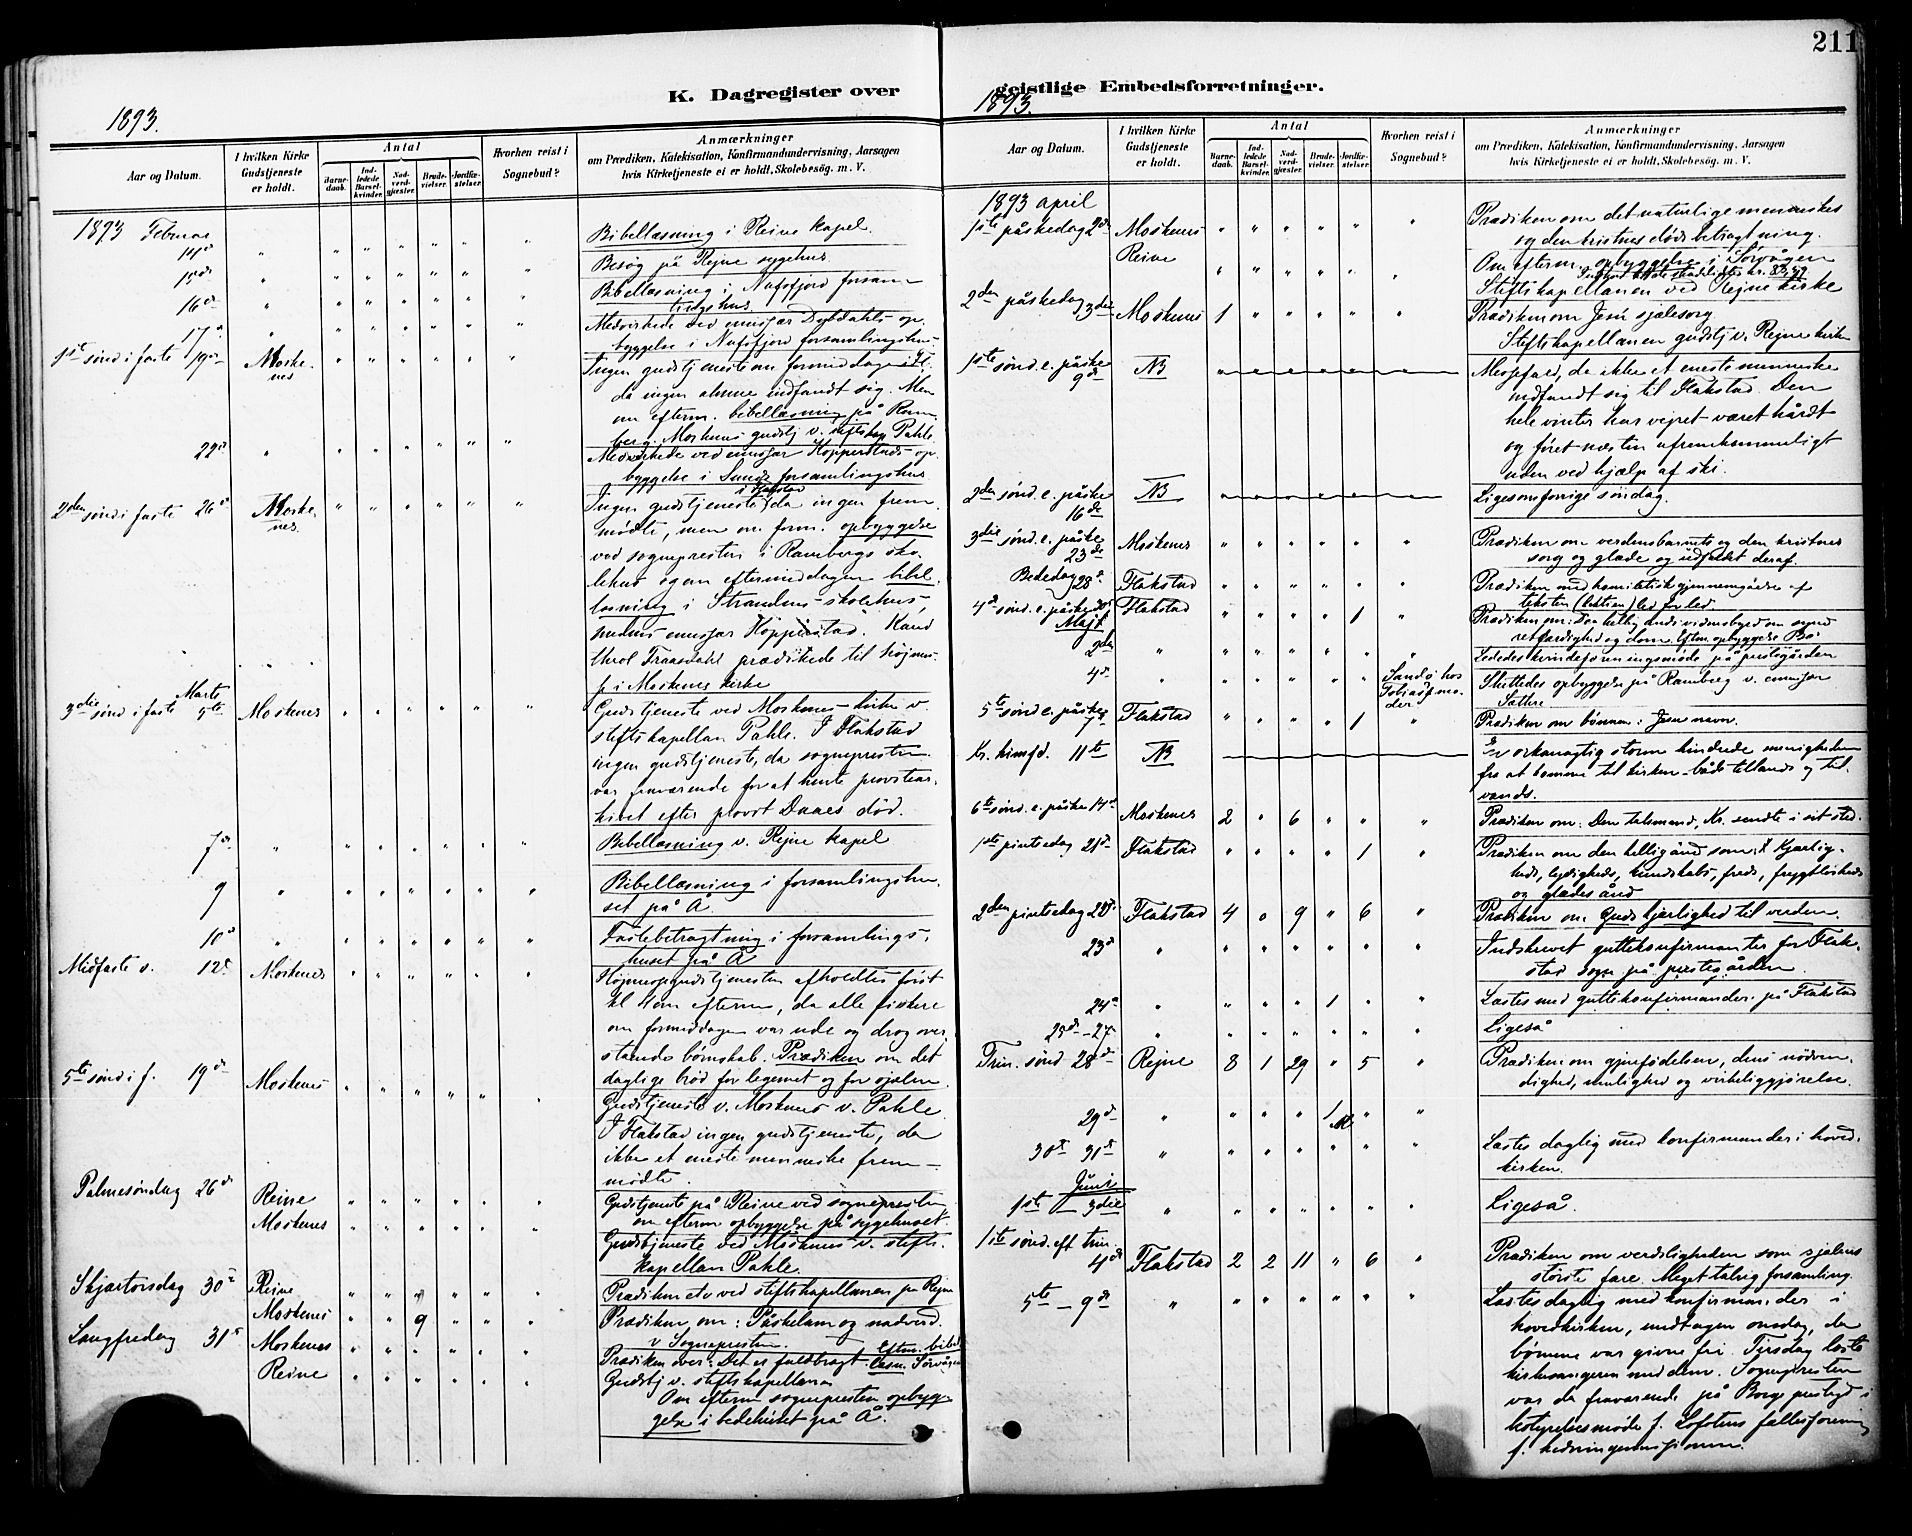 211
K. Dagregister over geistlige Embedsforretninger.
1893.
1893.
Aar og Datum.
I hvilken Kirke Gudstjeneste er holdt.
Antal
Barnedaab.
Indledede Barselkvinder.
Nadverdgjæster.
Brudevielser.
Jordfæstelser.
Hvorhen reist i Sognebud?
Anmærkninger
om Prædiken, Katekisation, Konfirmandundervisning, Aarsagen
hvis Kirketjeneste ei er holdt, Skolebesøg. m. V.
1893 Februar
14d " " " " " " " Bibellæsning i Reine kapel.
15de " " " " " " " Besøg på Rejne sygehus.
16d " " " " " " " Bibellæsning i Nufsfjord forsamlingshus.
17d " " " " " " " Medvirkede ved emissær Dybdahls opbyggelse i Nufsfjord forsamlingshus
1ste sønd i faste 19de Moskenes " " " " " " Ingen gudstjeneste om formiddagen i Fl.
da ingen almue indfandt sig. Men
om efterm. bibellæsning på Ramberg. Moskenes gudstj v. stiftskap Pahle.
22d " " " " " " " Medvirkede ved emissær Hopperstads opbyggelse i Sunds forsamlingshus
2den sønd i faste 26d Moskenes " " " " " " Ingen gudstjeneste i Flakstad da ingen fremmødte, men om form. opbyggelse
ved sognepresten i Rambergs skolehus og om eftermiddagen bibellæsning i Strandens skolehus,
sammes emissær Hopperstad. Kand
theol Fraasdahl prædikede til højmesse i Moskenes kirke
Marts
3die sønd i faste 5te Moskenes " " " " " " Gudstjeneste ved Moskenes kirke v.
stiftskapellan Pahle. I Flakstad
ingen gudstjeneste, da sognepresten
var fraværende for at hente provstearkivet efter provst Daaes død.
7de " " " " " " " Bibellæsning v. Rejne kapel
9 " " " " " " " Bibellæsning i forsamlingshuset på Å.
10d " " " " " " " Fastebetragtning i forsamlingshuset på Å
Midfaste s. 12te Moskenes " " " " " " Højmessegudstjenesten afholdtes først
kl 4 om efterm, da alle fiskere
om formiddagen var ude og drog overstaende børnskab. Prædiken om det
daglige brød for legemet og for sjælen.
5te sønd i f. 19de Moskenes " " " " " " Gudstjeneste v. Moskenes v. Pahle
I Flakstad ingen gudstjeneste, da
ikke et eneste menneske fremmødte.
Palmesøndag 26de Reine " " " " " " Gudstjeneste på Reine ved sognepresten
om efterm opbyggelse på sygehuset.
Moskenes " " " " " " Gudstjeneste ved Moskenes v. stiftskapellan Pahle.
Skjærtorsdag 30te Reine " " " " " " Prædiken etc ved stiftskapellanen på Rejne
Moskenes " " 9 " " " Prædiken om: Påskelam og nadverd.
v Sognepresten.
Langfredag 31te Moskenes " " " " " " Prædiken over: Det er fuldbragt. Efterm. bibellæsn. Sørvågen
Reine " " " " " " Gudstj v. stiftskapellanen
Om efterm sognepresten opbyggelse i bedehuset på Å.
Aar og Datum.
I hvilken Kirke Gudstjeneste er holdt.
Antal
Barnedaab.
Indledede Barselkvinder.
Nadverdgjæster.
Brudevielser.
Jordfæstelser.
Hvorhen reist i Sognebud?
Anmærkninger
om Prædiken, Katekisation, Konfirmandundervisning, Aarsagen
hvis Kirketjeneste ei er holdt, Skolebesøg. m. V.
1893 april
1ste påskedag 2den Moskenes " " " " " " Prædiken om det naturlige menneskes
og den kristnes dødsbetragtning.
Reine " " " " " " Om efterm. opbyggelse i Sørvågen
Stiftskapellanen ved Rejne kirke
2den påskedag 3die Moskenes 1 " " " " " Prædiken om Jesu sjælesorg
Stiftskapellanen gudstj v. Rejne kirke
1ste sønd. e. påske 9de NB Messefald, da ikke et eneste menneske
indfandt sig til Flakstad. Den
hele vinter har vejret været hårdt
og føret næsten ufremkommeligt
uden ved hjælp af ski.
2den sønd. e. påske 16de NB Ligesom forrige søndag.
3die sønd. e. påske 23de Moskenes " " " " " " Prædiken om verdensbarnets og den kristnes
sorg og glæde og udfaldet deraf.
Bededag 28d. Flakstad " " " " " " Prædiken med homiletisk gjennemgåelse af
teksten (lektien) led for led.
4d sønd. e. påske 30te Flakstad " " " " 1 " Prædiken om: Den hellig ånds vidnesbyrd om synd
retfærdighed og dom. Efterm opbyggelse Bø
Maj
2den " " " " " " " Lededes kvindeforeningsmøde på prestegården
4de " " " " " " Sandø hos Tobias's moder. Skiftedes opbyggelse på Ramberg v. emissær
Sættre
5te sønd e. påske 7de Flakstad " " " " 1 " Prædiken om bønnen i Jesu navn.
Kr. himfd. 11te NB En orkanagtig storm hindrede menigheden
fra at komme til kirken både tillands og tilvands.
6te sønd. e. påske 14de Moskenes 2 " 6 " " " Prædiken om: Den talsmand, Kr. sendte i sit sted.
1ste pintsedag 21de Flakstad " " " " 1 " Prædiken om den helligånd som: Kjærligheds, lydigheds, kundskabs, freds, frygtløsheds
og glædes ånd
2den pintsedag 22de Flakstad 4 0 9 " 6 " Prædiken om Guds kjærlighed til verden.
23d " " " " " " " Indskrevet guttekonfirmanter for Flakstad sogn på prestegården.
24d " " " " 1 " " Læstes med guttekonfirmander på Flakstad
25de - 27de " " " " " " " Ligeså
Trin. sønd 28de Rejne 8 1 29 " 5 " Prædiken om gjenfødelsen, dens nødvendighed, mulighed og virkeliggjørelse.
29d " " " " 1 " "
30te 31te " " " " " " " Læstes daglig med konfirmander i hovedkirken.
Juni
1ste - 3die " " " " " " " Ligeså.
1ste sønd. eft trin. 4de Flakstad 2 2 11 " 6 " Prædiken om verdsligheden som sjælens
største fare. Meget talrig forsamling.
5te - 9de " " " " " " " Læstes daglig med konfirmander i
hovedkirken, undtagen onsdag, da
børnene var givne fri. Tirsdag læste
kirkesangeren med dem. Sognepresten
var da fraværende på Borge prestegd i
bestyrelsesmøde f. Lofotens fællesforening
f. hedningemissionen.